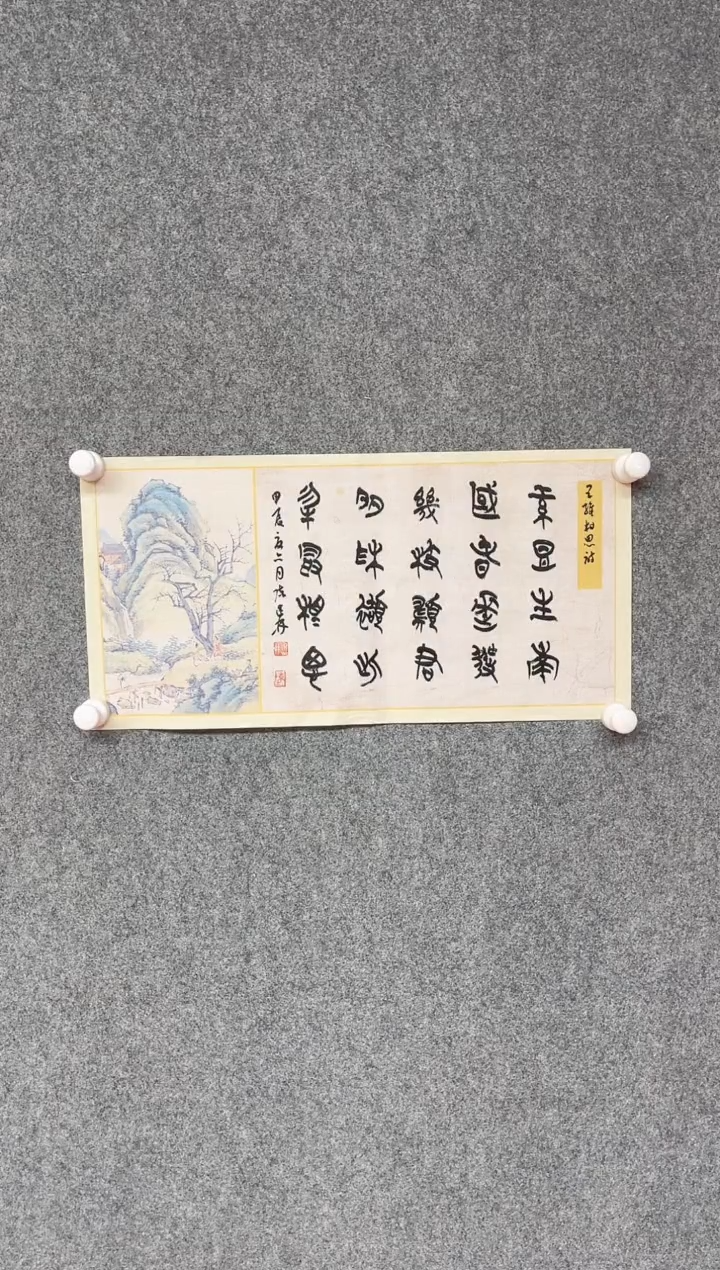 王維相思詩
紅豆生南
國春來發
幾枝願君
多采擷此
物最相思
甲辰二月